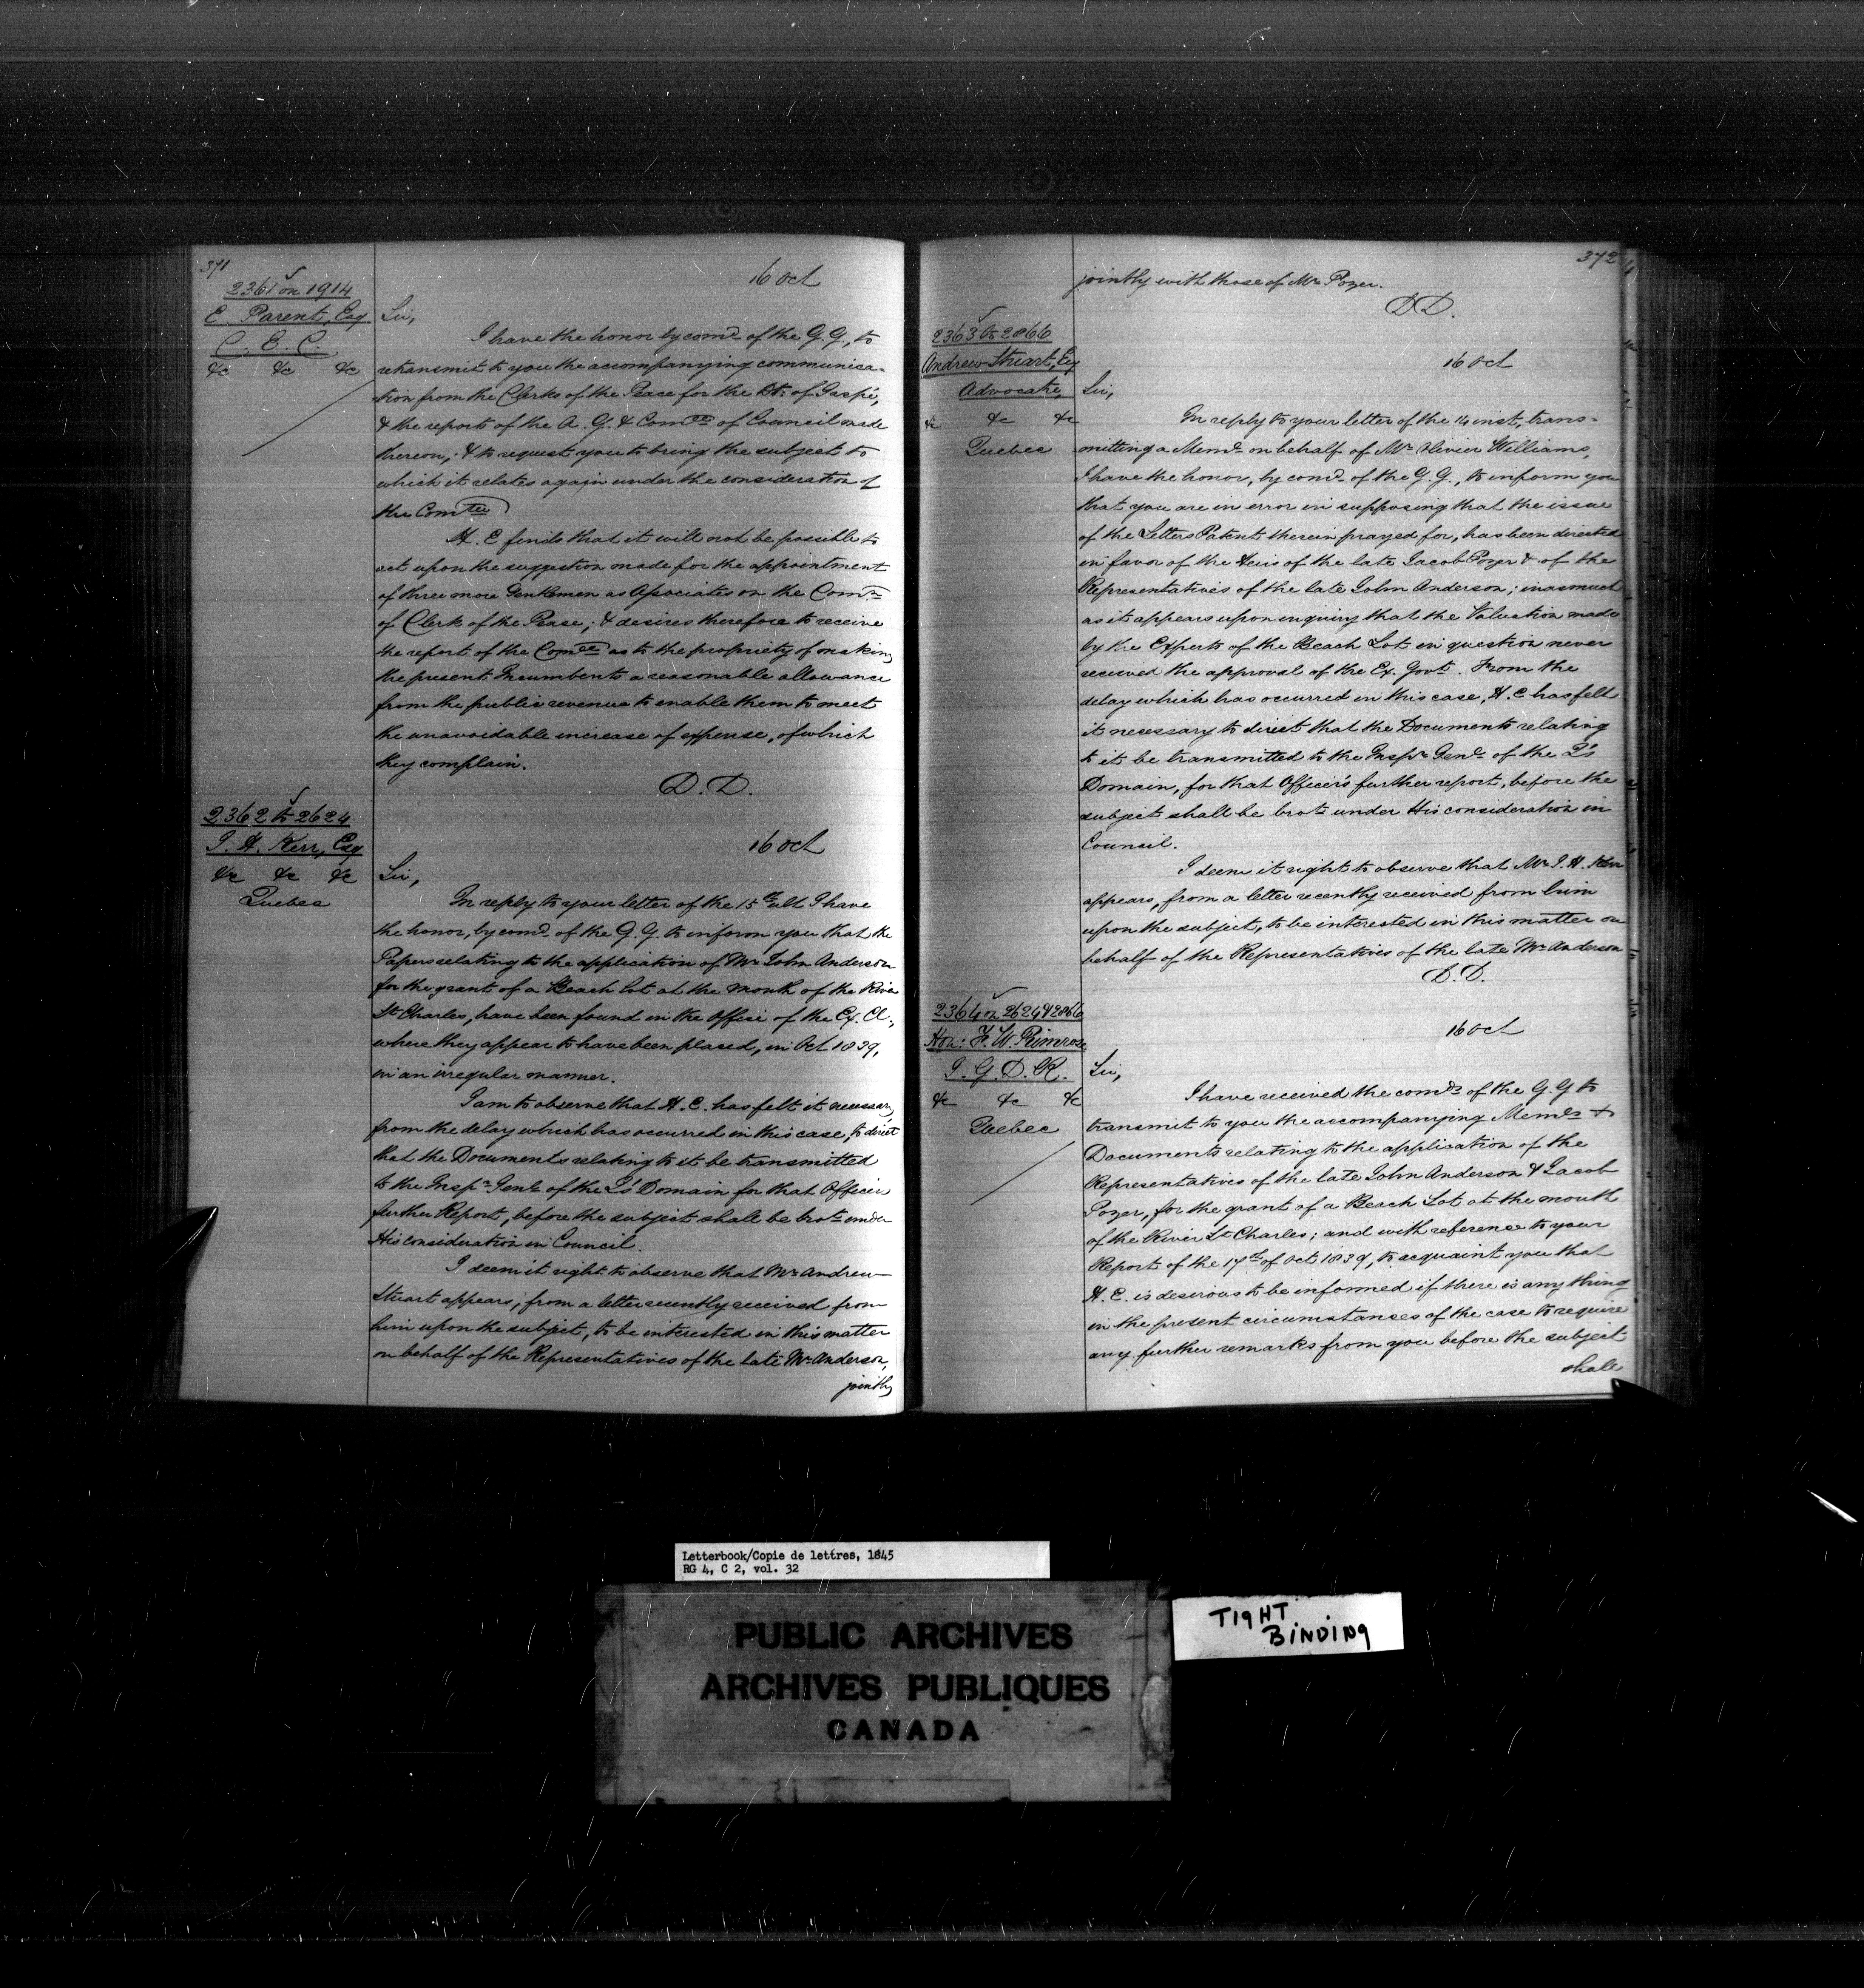 371
2361 on 1914
E. Parent, Esq
C. E. C.
&c &c &c
16 Oct
Sir,
I have the honor by comd of the G. G., to
retransmit to you the accompanying communica-
tion from the Clerks of the Peace for the Dt: of Gaspé,
& the reports of the A. G. & Comee of Council made
thereon; & to request you to bring the subject to
which it relates again under the consideration of
the Comtee
H. E finds that it will not be possible to
act upon the suggestion made for the appointment
of three more Gentlemen as Associates on the Comn
of Clerk of the Peace; & desires therefore to receive
the report of the Comee as to the propriety of making
the present Incumbents a reasonable allowance
from the public revenue to enable them to meet
the unavoidable increase of expense, of which
they complain.
D. D.
2362 to 2624
J. H. Kerr, Esq
&c &c &c
Quebec
16 Oct
Sir,
In reply to your letter of the 15th ult I have
the honor, by comd of the G. G. to inform you that the
Papers relating to the application of Mr John Anderson
for the grant of a Beach lot at the mouth of the River
St Charles, have been found in the Office of the Ex. Cl:,
where they appear to have been placed, in Oct 1839,
in an irregular manner.
I am to observe that H. E. has felt it necessary
from the delay which has occurred in this case, to direct
that the Documents relating to it be transmitted
to the Inspr Genl of the Q's Domain for that Officers
further Report, before the subject shall be brot under
His consideration in Council.
I deem it right to observe that Mr Andrew
Stuart appears, from a letter recently received from
him upon the subject, to be interested in this matter
on behalf of the Representatives of the late Mr Anderson,
jointly
372
jointly with those of Mr Pozer.
D D.
2363 to 2866
Andrew Stuart, Esq
Advocate
&c &c &c
Quebec
16 Oct
Sir,
In reply to your letter of the 14 inst, trans-
mitting a Meml on behalf of Mr Olivier Williams,
I have the honor, by comd of the G. G., to inform you
that you are in error in supposing that the issue
of the Letters Patent therein prayed for, has been directed
in favor of the Heirs of the late Jacob Pozer & of the
Representatives of the late John Anderson; inasmuch
as it appears upon inquiry that the Valuation made
by the Experts of the Beach Lot in question never
received the approval of the Ex. Govt. From the
delay which has occurred in this case, H. E has felt
it necessary to direct that the Documents relating
to it be transmitted to the Inspr Genl of the Q's
Domain, for that Officer's further report, before the
subject shall be brot under His consideration in
Council.
I deem it right to observe that Mr J. H. Kerr
appears, from a letter recently received from him
upon the subject, to be interested in this matter on
behalf of the Representatives of the late Mr Anderson
D. D.
2364 on 2624 & 2866
Hon: F. W. Primrose
I. G. D. R.
&c &c &c
Quebec
16 Oct
Sir,
I have received the comds of the G. G to
transmit to you the accompanying Memls &
Documents relating to the application of the
Representatives of the late John Anderson & Jacob
Pozer, for the grant of a Beach Lot at the mouth
of the River St Charles; and with reference to your
Report of the 17th of Oct 1839, to acquaint you that
H. E. is desirous to be informed if there is any thing
in the present circumstances of the case to require
any further remarks from you before the subject
shall
Letterbook/Copie de lettres, 1845
RG 4, C 2, vol. 32
PUBLIC ARCHIVES
ARCHIVES PUBLIQUES
CANADA
TIGHT
BINDING